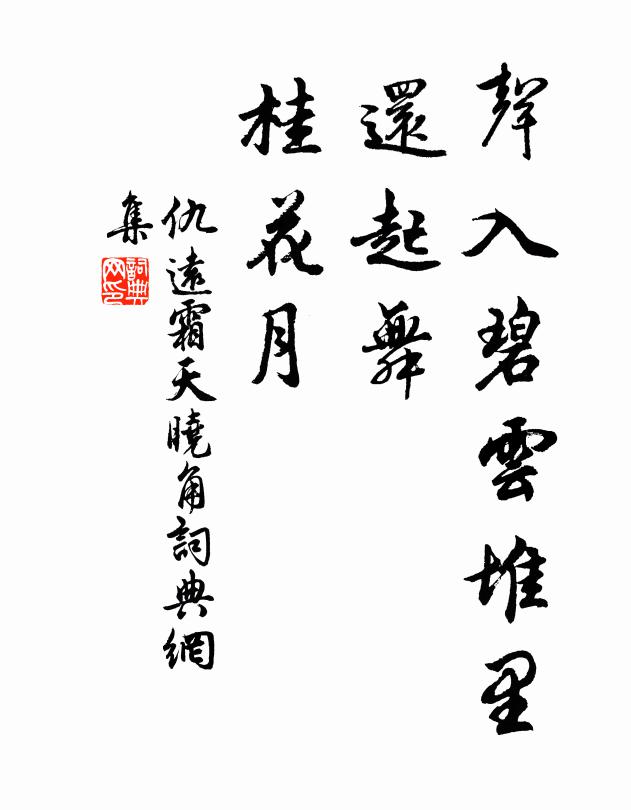 聲入碧雲堆里
還起舞
桂花月
仇遠霜天曉角詞典網
集
詞典
网印